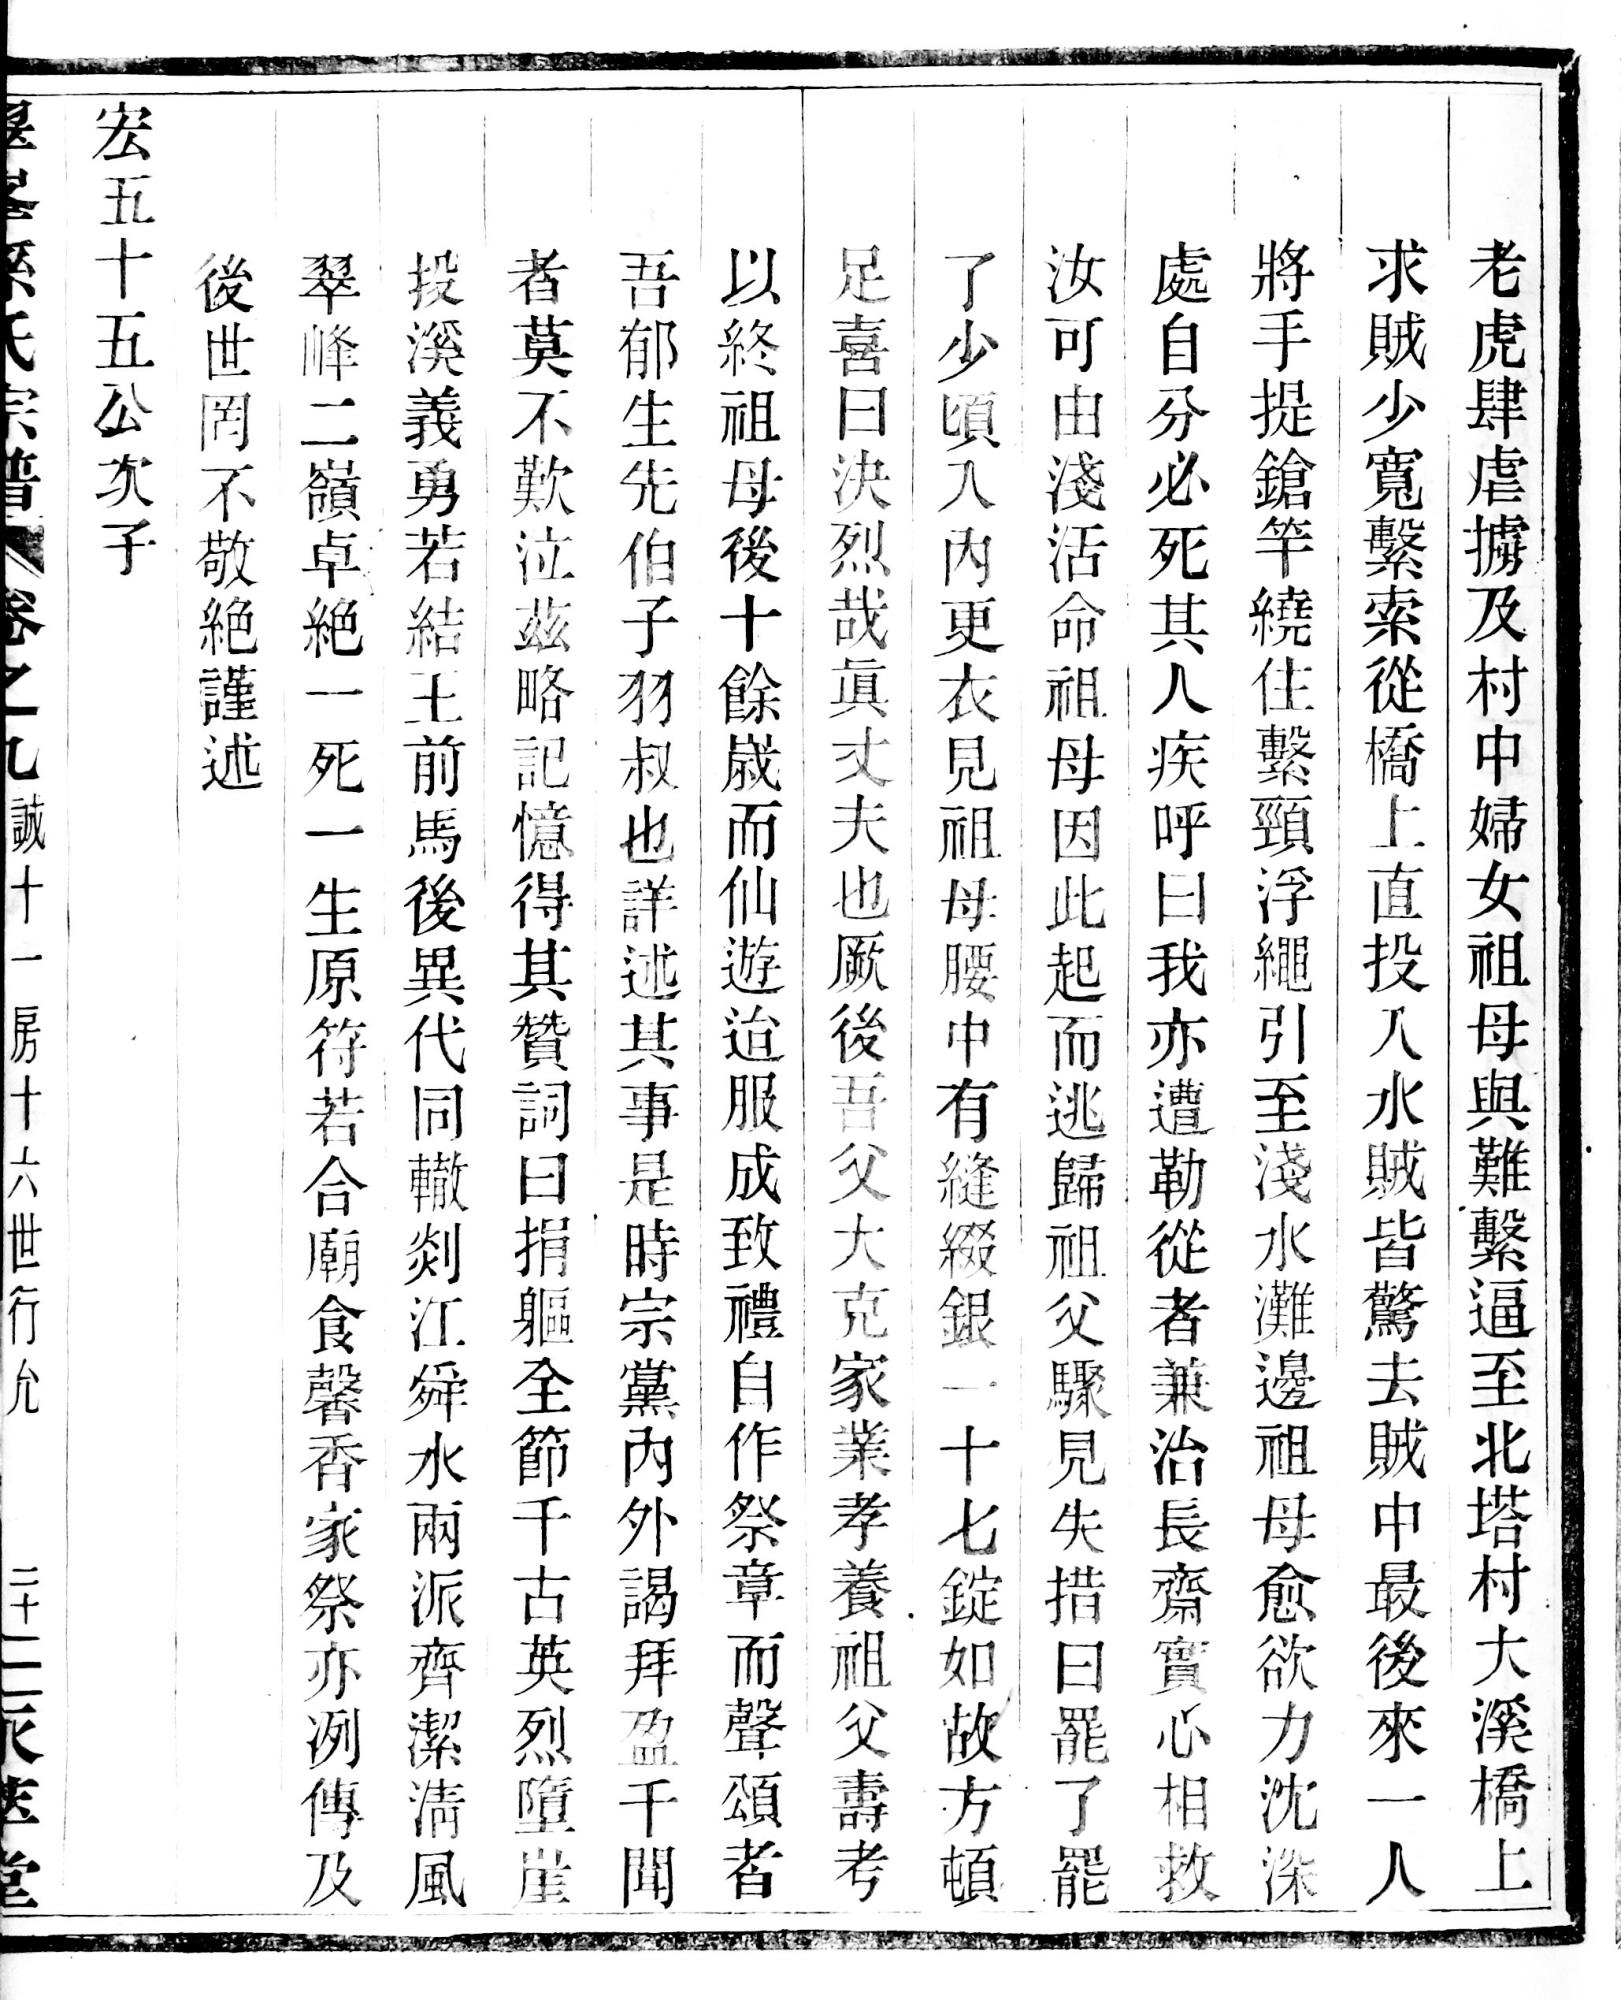 老虎肆虐擄及村中婦女祖母與難繫逼至北塔村大溪橋上
求賊少寬繫索從橋上直投入水賊皆驚去賊中最後來一人
將手提鎗竿繞住繫頸浮繩引至淺水灘邊祖母愈欲力沈深
處自分必死其人疾呼曰我亦遭勒從者兼治長齋實心相救
汝可由淺活命祖母因此起而逃歸祖父驟見失措曰罷了罷
了少頃入內更衣見祖母腰中有縫綴銀一十七錠如故方頓
足喜曰決烈哉眞丈夫也厥後吾父大克家業孝養祖父壽考
以終祖母後十餘歲而仙遊迨服成致禮自作祭章而聲頌者
吾郁生先伯子羽叔也詳述其事是時宗黨內外謁拜盈千聞
者莫不歎泣茲略記憶得其贊詞曰捐軀全節千古英烈墮崖
投溪義勇若結王前馬後異代同轍剡江舜水兩派齊潔淸風
翠峰二嶺卓絶一死一生原符若合廟食馨香家祭亦冽傳及
後世罔不敬絶謹述
宏五十五公次子
氏宗譜 卷之九 誠十一房十六世行允 二十二 萃堂